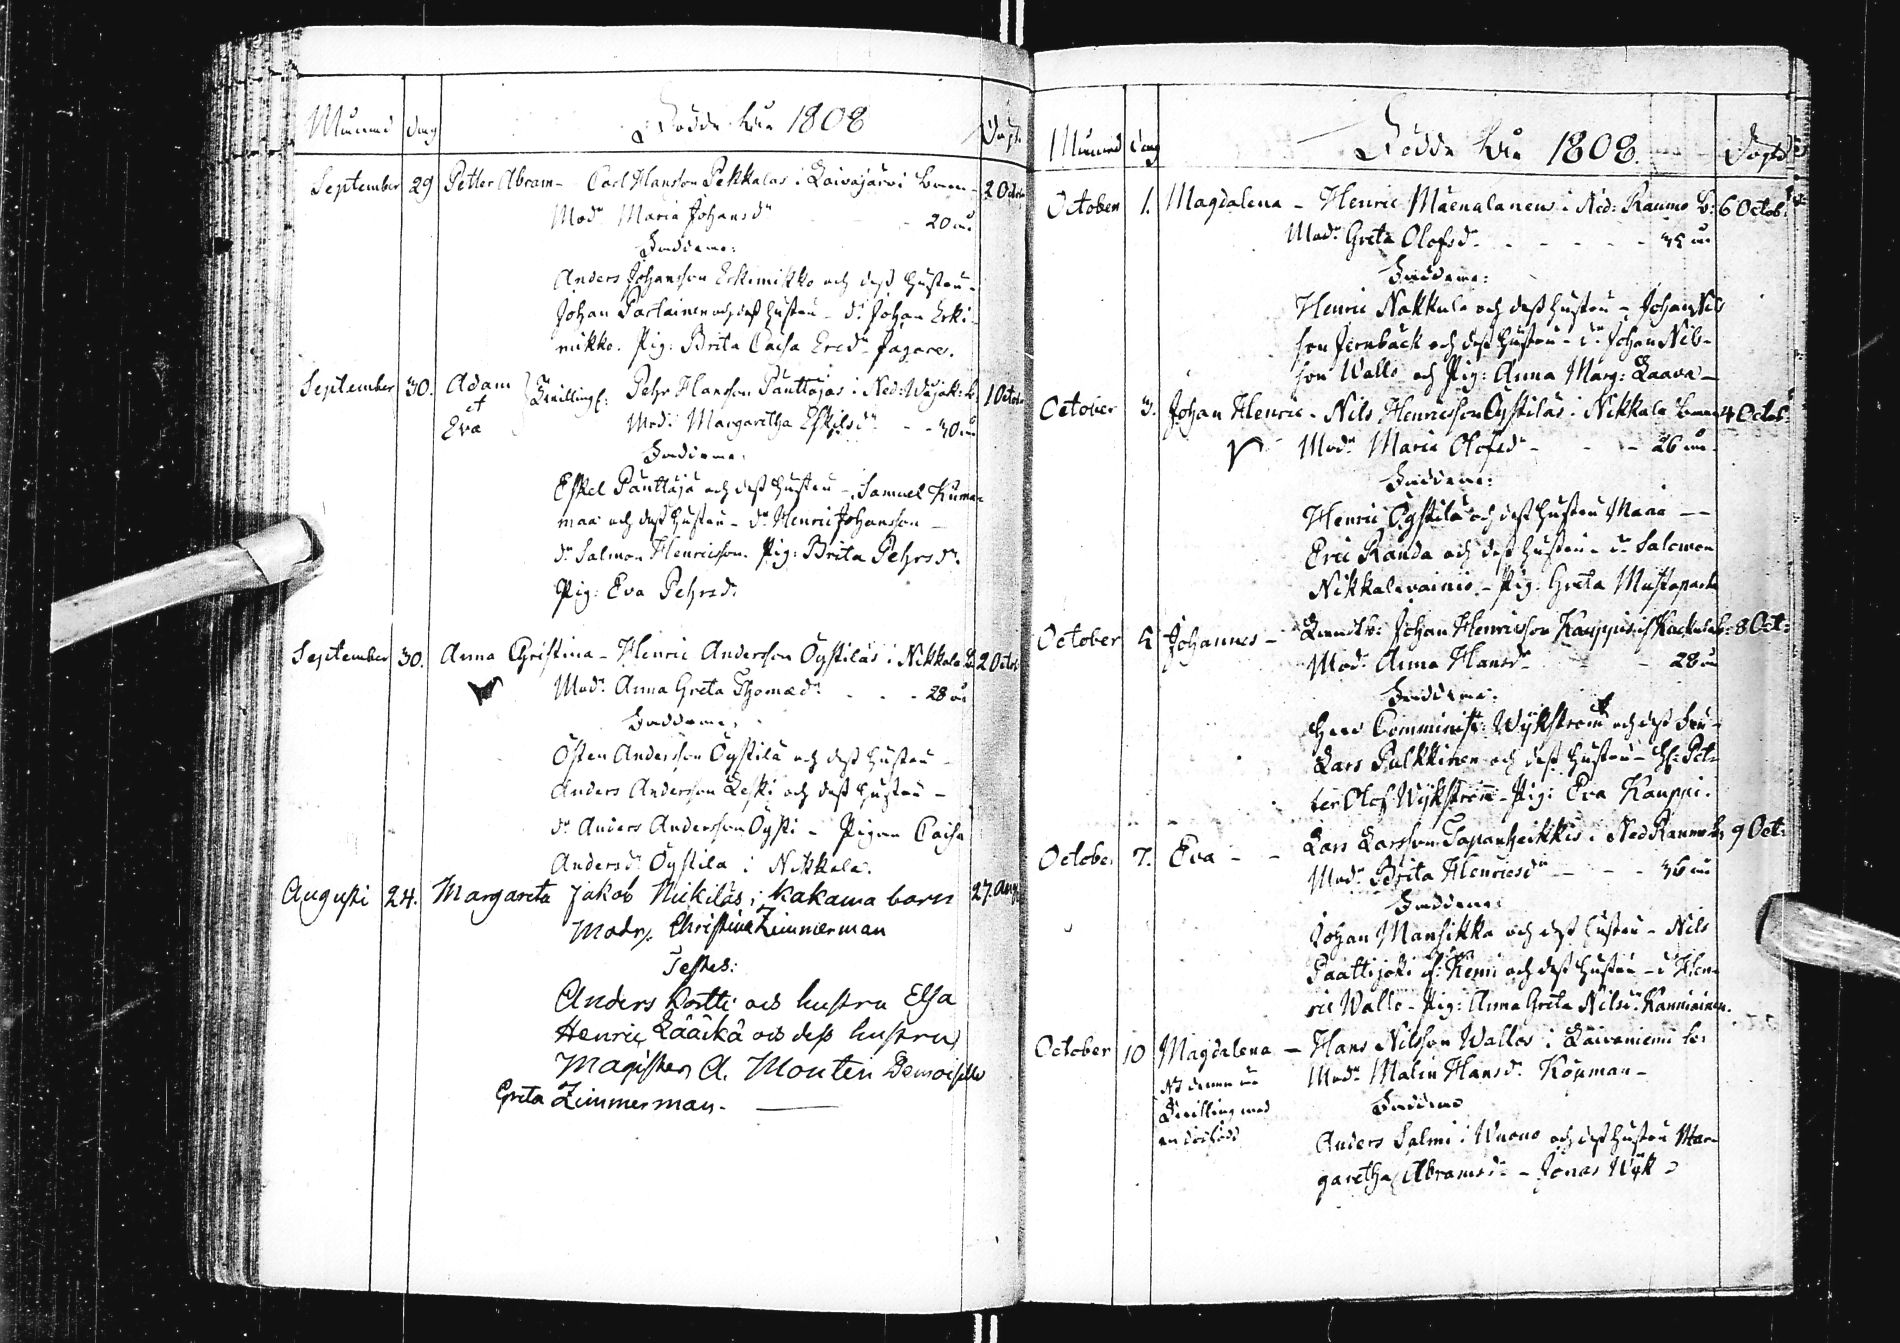 Månad dag Födde År 1808 Döpt
September 29 Petter Abram - Carl Hansson Pekkalas i Laivajärvi barn - 2 Octob
Mod: Maria Johansd: - 20 år
Faddrarne:
Anders Johansson Erkimikko och dess hustru -
Johan Partainen och dess hustru - d: Johan Erki-
mikko. Pig: Brita Caisa Ericd: Fagare.
September 30. Adam et Eva Tvillingr: Pehr Hansson Pänttäjäs i Ned: Wojak: b. 1 Octob
Mod: Margaretha Eskilsd: - - 30 år
Faddrarne:
Eskel Pänttäjä och dess hustru - Samuel Kuma-
maa och dess hustru - d: Henric Johansson -
d: Salmon Henricsson. Pig: Brita Pehrsd:
Pig: Eva Pehrsd:
September 30. Anna Christina - Henric Andersson Öystiläs i Nikkala b. 2 Octob
Mod: Anna Greta Thomæd: - - - 28 år
Faddrarne:
Östen Andersson Öystilä och dess hustru -
Anders Andersson Leski och dess hustru -
d: Anders Andersson Öysti - Pigan Caisa
Andersd: Öystilä i Nikkala.
Augusti 24. Margareta Jakob Nickiläs i Kakama barn 27. Aug
Modr. Christina Zimmerman
Testes:
Anders Kortti och hustru Elsa
Henric Lääckö och dess hustru
Magister A. Monten Demoiselle
Greta Zimmerman. -
Månad dag Födde År 1808. Döpte
October 1. Magdalena - Henric Mäenalanens i Ned: Raumo b: 6 Octob:
Mod: Greta Olofsd: - - - - - 35 år
Faddrarne:
Henric Nakkula och dess hustru - Johan Nils
son Jernbäck och dess hustru - d: Johan Nils-
son Wallo och Pig: Anna Marg: Laava -
October 3. Johan Henric - Nils Henricsson Öystiläs i Nikkala barn 4 Octob:
Mod: Maria Olofsd: - - - 26 år -
Faddrarne:
Henric Öystilä och dess hustru Maria - -
Eric Randa och dess hustru - d: Salomon
Nikkalavainio - Pig: Greta Mustaparta
October 5 Johannes - Landtb: Johan Henricsson Kauppis if Kackula b: 8 Oct:
Mod: Anna Hansd: - 28 år
Faddrarne:
Herr Comminist: Wijkström och dess fru -
Lars Pulkkinen och dess hustru - Hr: Pet-
ter Olof Wijkström - Pig: Eva Kauppi.
October 7. Eva - - Lars Larsson Tapanheikkis i Ned Raumo b. 9 Oct:
Mod: Brita Henricsd: - - - 36 år
Faddrarne:
Johan Mansikka och dess hustru - Nils
Paattijoki if: Kemi och dess hustru - d: Hen-
ric Wallo - Pig: Anna Greta Nilsd: Kanniainen.
October 10 Magdalena - Hans Nilsson Wallos i Laivaniemi b:
Mod: Malin Hansd:Köpman -
Nb denna är
Tvilling med
en dödfödd
Faddrarne
Anders Salmi i Wuono och dess hustru Mar-
garetha Abramsd: - Jonas Wijk -